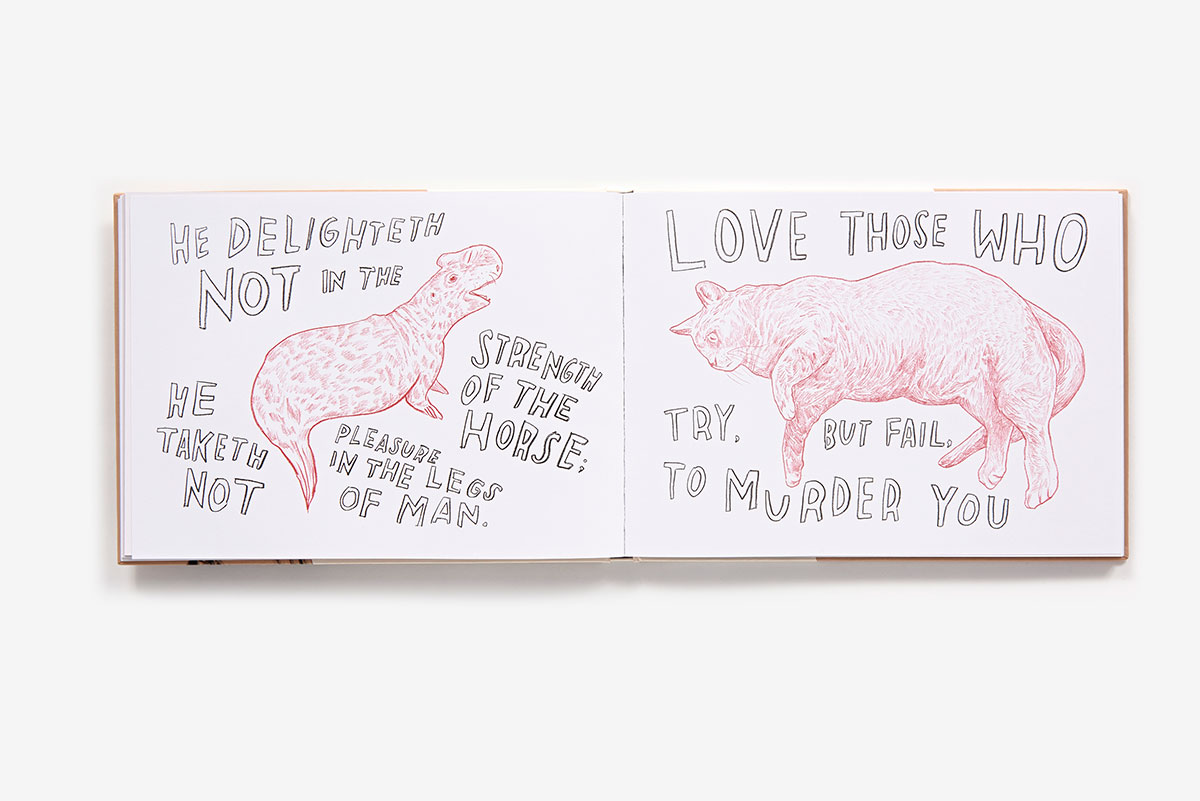 HE DELIGHTETH
NOT IN THE
STRENGTH
OF THE
HORSE;
HE
TAKETH
NOT
PLEASURE
IN THE LEGS
OF MAN.
LOVE THOSE WHO
TRY, BUT FAIL,
TO MURDER YOU